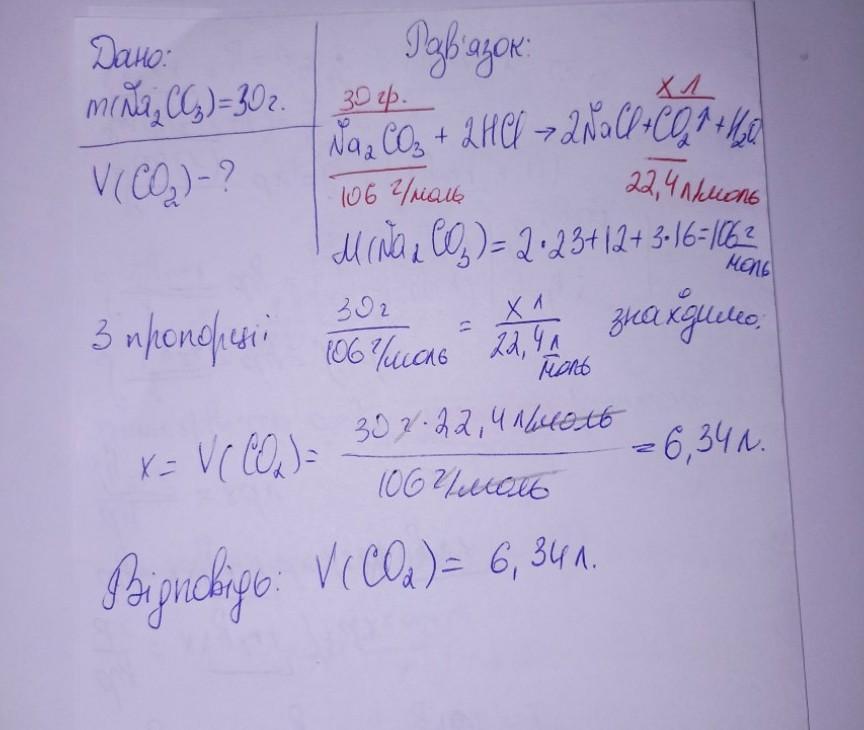 Дано:
m(Na₂CO₃)=30г.
V(CO₂)-?
Розв'язок:
30гр. x л
Na₂CO₃ + 2HCl → 2NaCl+CO₂↑+H₂O
106 г/моль 22,4 л/моль
M(Na₂CO₃)= 2·23+12+3·16=106 г/моль
З пропорції 30г/106 г/моль = x л/22,4 л/моль знаходимо:
x = V(CO₂)= 30 г·22,4 л/моль / 106 г/моль = 6,34 л.
Відповідь: V(CO₂)= 6,34 л.